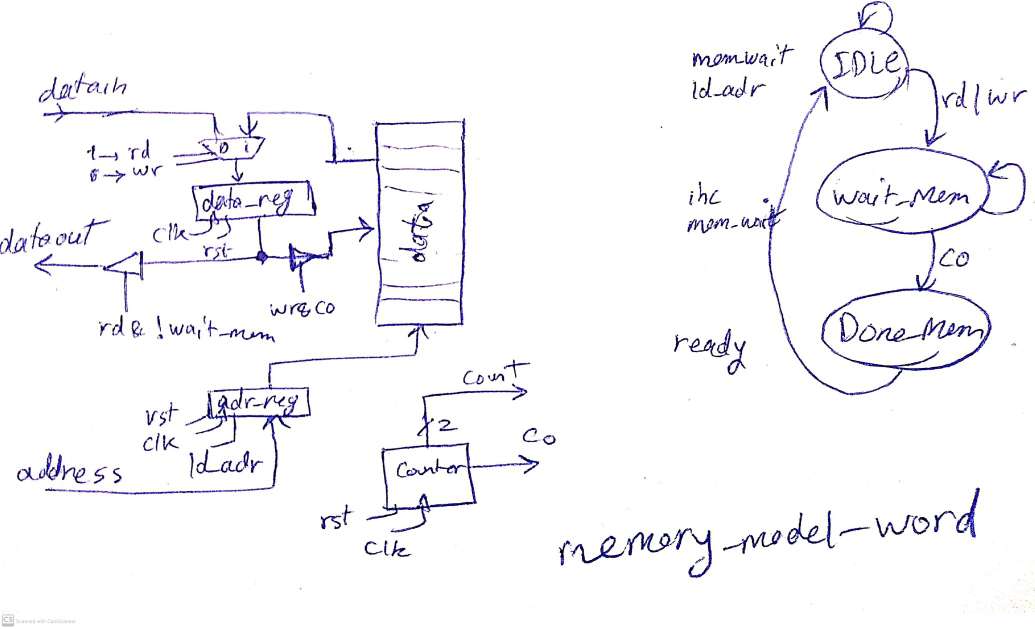 datain
1 → rd
0 → wr
0 1
data_reg
clk
rst
dataout
rd & !wait_mem
wr&co
data
adr_reg
rst
clk
ld_adr
address
count
2
co
Counter
rst
clk
mem_wait
ld_adr
IDLE
rd/wr
inc
mem_wait
wait_mem
co
ready
Done_mem
memory_model_word
CS Scanned with CamScanner